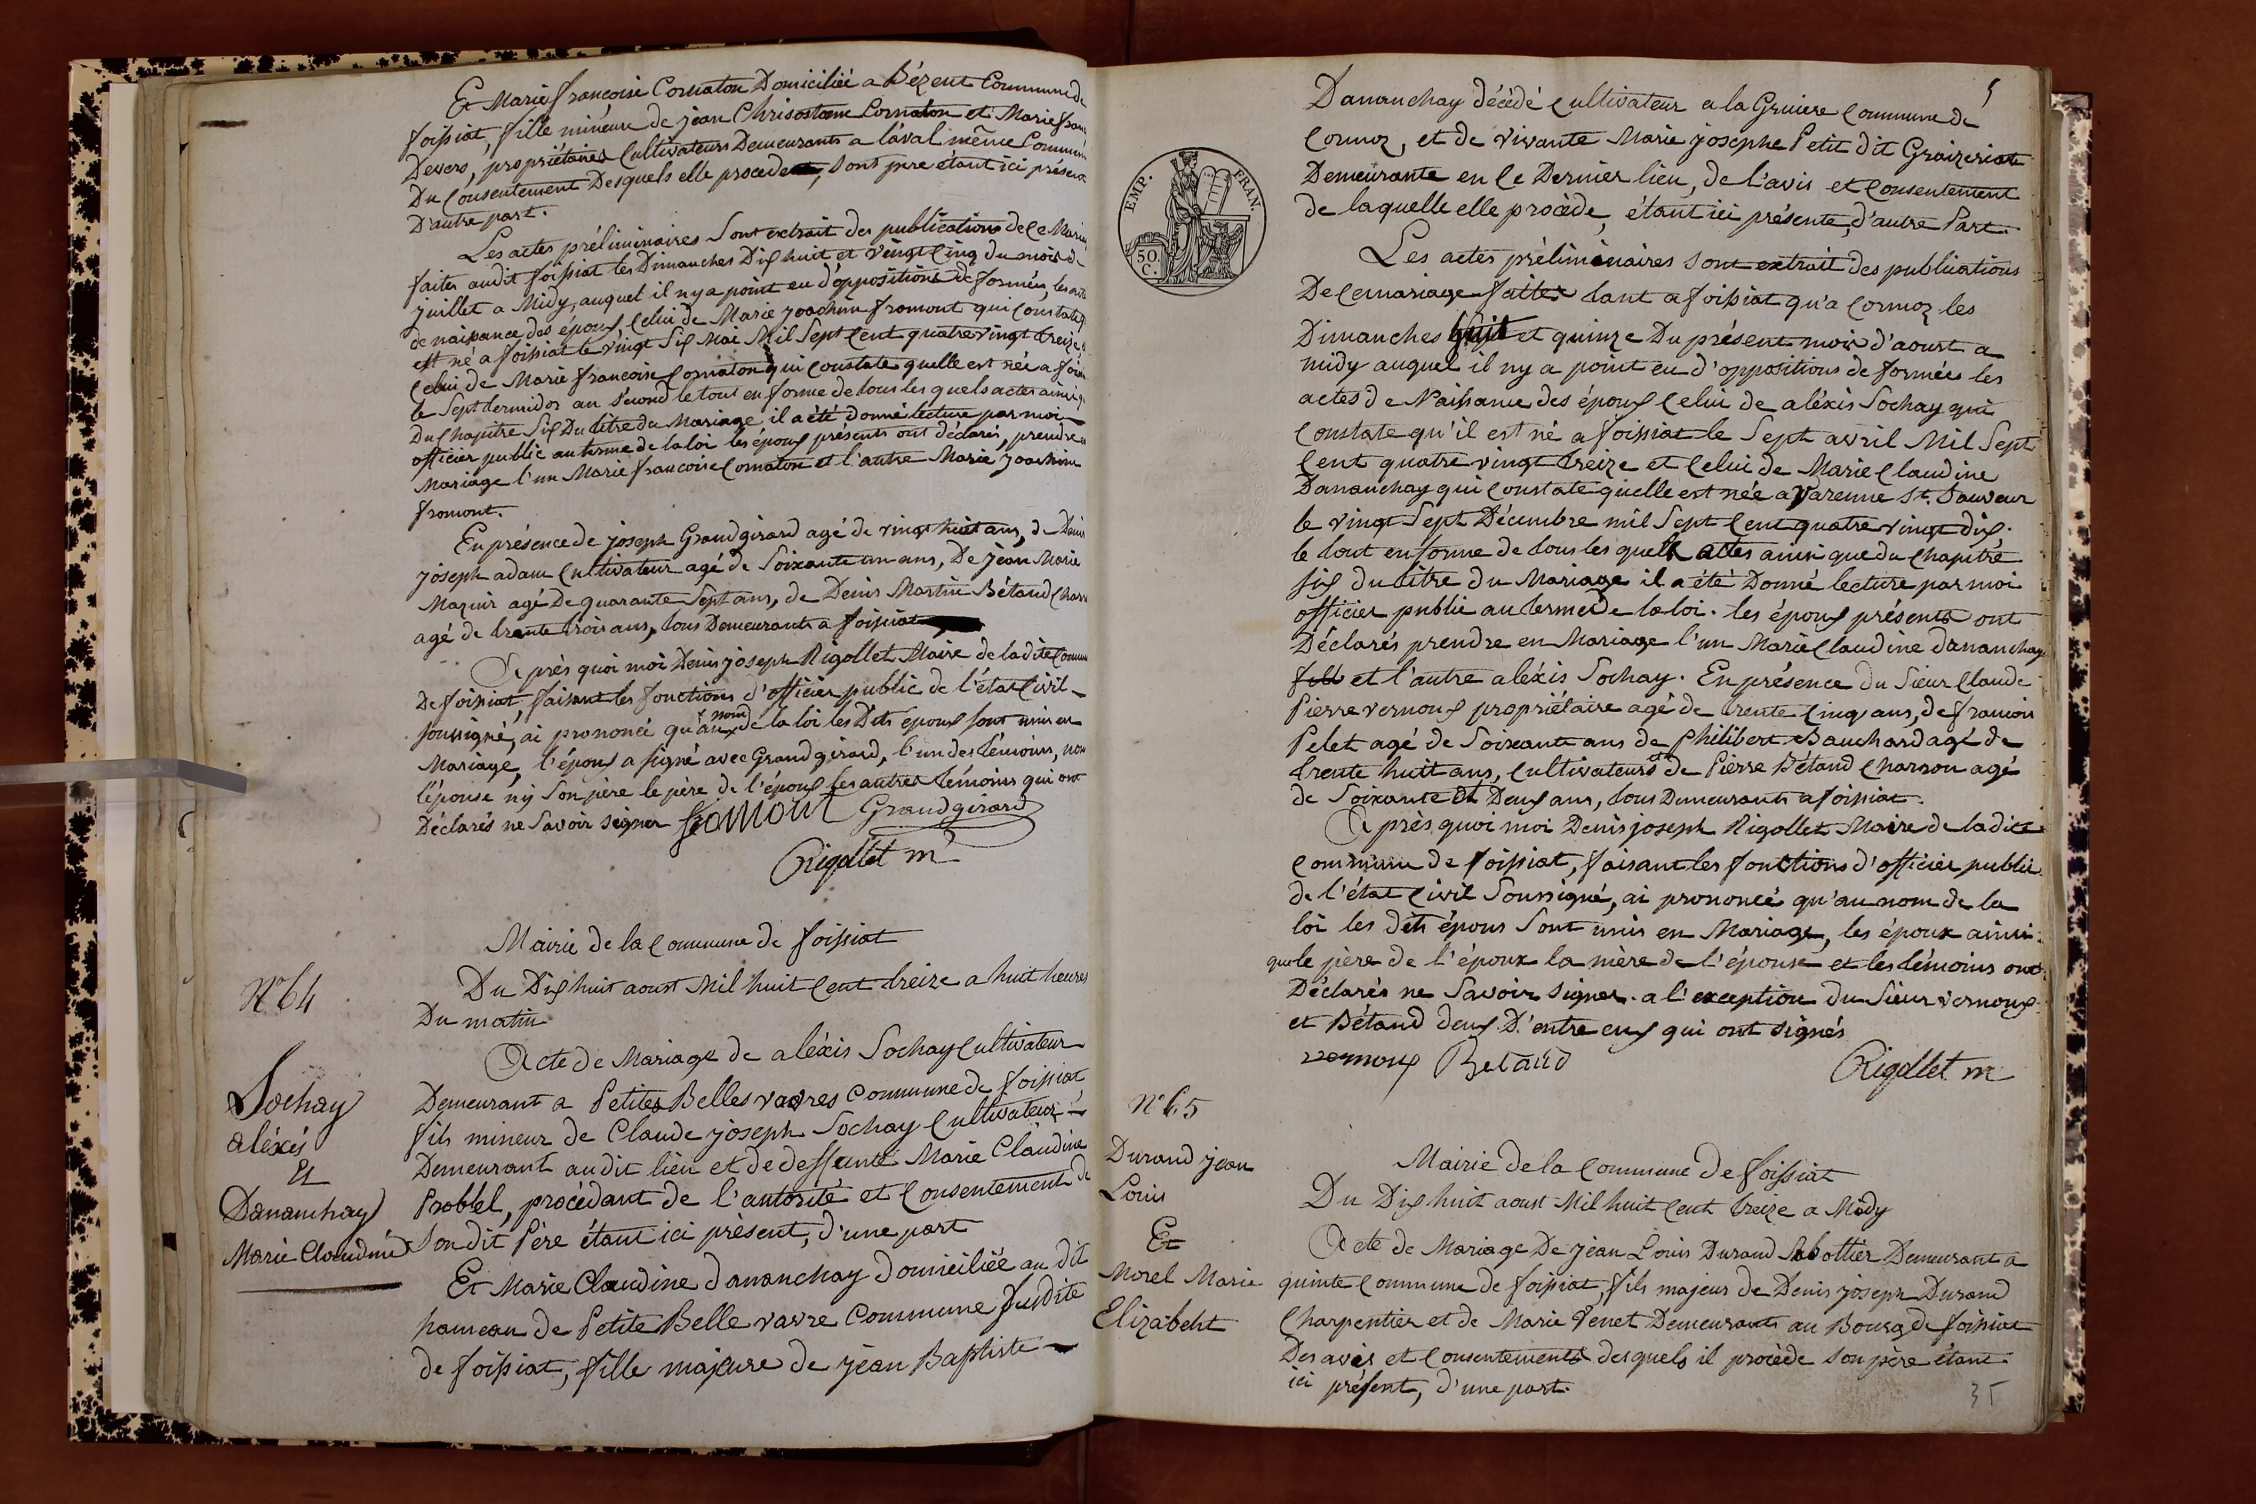 Et Marie françoise Cornaton Domiciliée a Bézent Commune de
foissiat, fille mineure de jean Chrisostome Cornaton et Marie fran
Devers, propriétaires Cultivateurs Demeurants a laval même Commune
Du Consentement Desquels elle procede, Sont père étant ici présent
D'autre part.
Les actes préliminaires Sont extrait des publications de Ce Mariage
faites audit foissiat les Dimanches Dix huit et vingt Cinq du mois de
juillet a Midy, auquel il ny a point eu d'oppositions de formées, les actes
de naissance des époux, Celui de Marie joachim fromont qui Constate
est né a foissiat le vingt Six Mai Mil Sept Cent quatre vingt treize
Celui de Marie françoise Cornaton qui Constate quelle est née a foiss
le Sept termidor an Second le tout en forme de tous les quels actes ainsi q
Du Chapitre Six Du titre du Mariage, il a été donné lecture par moi
officier public au terme de la loi les époux présents ont déclarés, prendre en
Mariage l'un Marie françoise Cornaton et l'autre Marie joachim
fromont.
En présence de joseph Grandgirard agé de vingt huit ans, de Denis
joseph adam Cultivateur agé de Soixante un ans, De jean Marie
Maguir agé De quarante Sept ans, de Denis Martin Bétaud Charr
agé de trente trois ans, tous Demeurants a foissiat
Après quoi moi Denis joseph Rigollet Maire de ladite Commune
De foissiat, faisant les fonctions d'officier public de l'état Civil
Soussigné, ai prononcé qu'au nom de la loi les Dits époux Sont unis en
Mariage, l'époux a signé avec Grandgirard, l'un des témoins, non
l'épouse ny Son père le père de l'époux les autres témoins qui ont
Déclarés ne Savoir signer fromont Grandgirard
Rigollet m
Mairie de la Commune de foissiat
N° 64
Du Dix huit aoust Mil huit Cent treize a huit heures
Du matin
Sochay
aléxis
Et
Dananchay
Marie Claudine
Acte de Mariage de aléxis Sochay Cultivateur
Demeurant a Petites Belles vavres Commune de foissiat,
fils mineur de Claude joseph Sochay Cultivateur
Demeurant audit lieu et de deffunte Marie Claudine
Probbel, procédant de l'autorité et Consentement de
Son dit Père étant ici présent, d'une part
Et Marie Claudine dananchay domiciliée au dit
hameau de Petite Belle vavre Commune Susdite
de foissiat, fille majeure de jean Baptiste
5
Dananchay décédé Cultivateur a la Gruiere Commune de
Cormoz, et de vivante Marie josephe Petit dit Graizeriat
Demeurante en Ce Dernier lieu, de l'avis et Consentement
de laquelle elle procède, étant ici présente, d'autre Part.
EMP. FRAN.
50 C.
Les actes préliminaires Sont extrait des publications
De Ce mariage faites tant a foissiat qu'a Cormoz les
Dimanches huit et quinze Du présent mois d'aoust a
midy auquel il ny a point eu d'oppositions de formées les
actes de Naissance des époux Celui de aléxis Sochay qui
Constate qu'il est né a foissiat le Sept avril Mil Sept
Cent quatre vingt treize et Celui de Marie Claudine
Dananchay qui Constate quelle est née a Varenne St. Sauveur
le vingt Sept Décembre mil Sept Cent quatre vingt dix;
le tout en forme de tous les quels actes ainsi que du Chapitre
Six du titre du Mariage il a été Donné lecture par moi
officier public au terme de la loi. les époux présents ont
Déclarés prendre en Mariage l'un Marie Claudine dananchay
et l'autre aléxis Sochay. En présence du Sieur Claude
Pierre vernoux propriétaire agé de trente Cinq ans, de françois
Pelet agé de Soixante ans de Philibert Bauchard agé de
trente huit ans, Cultivateurs et de Pierre Bétaud Charron agé
de Soixante et Deux ans, tous Demeurants a foissiat.
Après quoi moi Denis joseph Rigollet Maire de ladite
Commune de foissiat, faisant les fonctions d'officier public
de l'état Civil Soussigné, ai prononcé qu'au nom de la
loi les dits époux Sont unis en Mariage, les époux ainsi
que le père de l'époux la mère de l'épouse et les témoins ont
Déclarés ne Savoir signer. a l'exception du Sieur vernoux
et Bétaud deux D'entre eux qui ont signés
vernoux Betaud Rigollet m
N° 65
Durand jean
Louis
Et
Morel Marie
Elizabeht
Mairie de la Commune de foissiat
Du Dix huit aoust Mil huit Cent treize a Midy
Acte de Mariage De jean Louis Durand Sabottier Demeurant a
quinte Commune de foissiat, fils majeur de Denis joseph Durand
Charpentier et de Marie Venet Demeurants au Bourg de foissiat
Des avis et Consentements desquels il procède Son père étant
ici présent, d'une part.
35